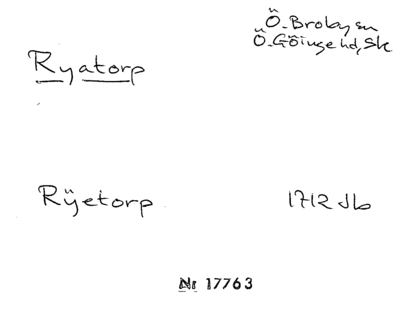 Ö. Broby sn
Ö. Göinge hd, Sk
Ryatorp
Rÿetorp 1712 Jb
Nr 17763